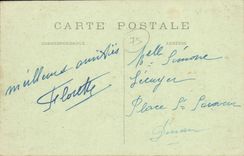 CARTE POSTALE
CORRESPONDANCE
ADRESSE
75
meilleures amitiés
Florette
Melle Simone
Lécuyer
Place St Sauveur
Dinan